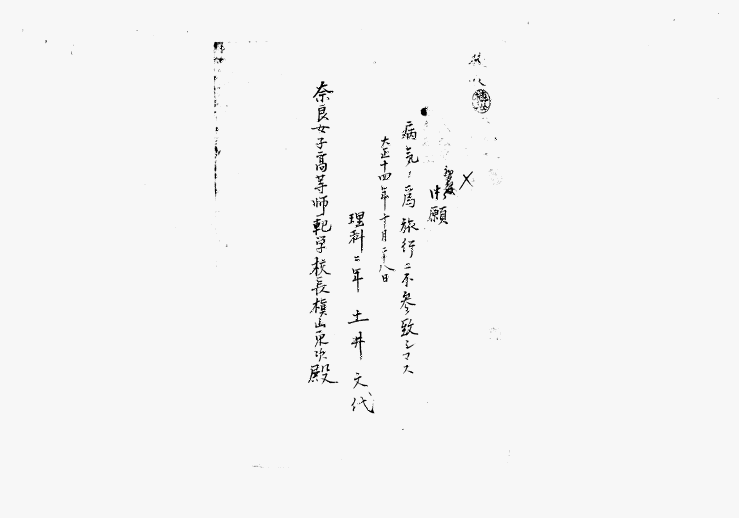 願
病気ノ為旅行ニ不参致シマス
大正十四年十月二十八日
理科二年 土井文代
奈良女子高等師範学校長槇山栄次殿